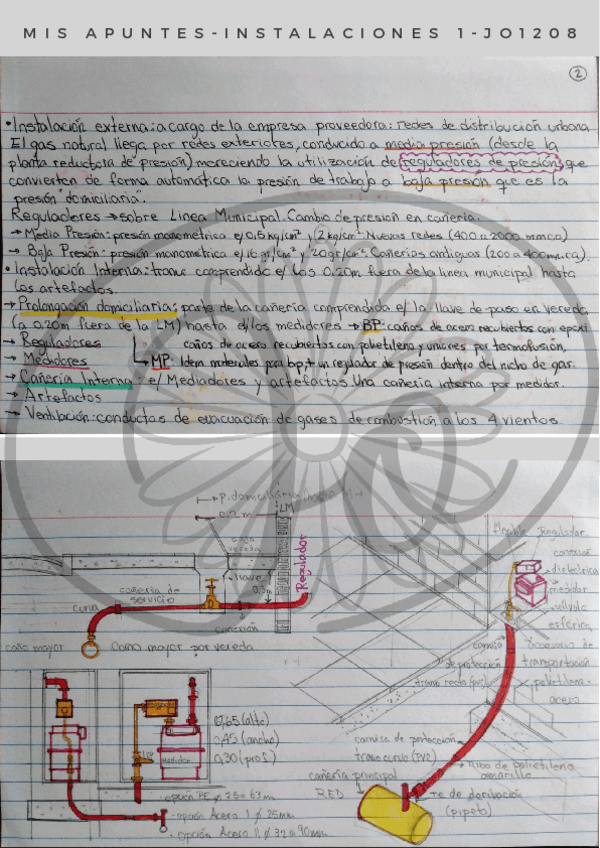 MIS APUNTES-INSTALACIONES 1-JO1208
2
•Instalación externa: a cargo de la empresa proveedora: redes de distribución urbana
El gas natural llega por redes exteriores, conducido a media presión (desde la
planta reductora de presión) mereciendo la utilización de reguladores de presión que
convierten de forma automática la presión de trabajo a baja presión que es la
presión domiciliaria.
Reguladores → sobre Linea Municipal. Cambio de presión en cañería.
→ Media Presión: presión manométrica e/ 0,5 kg/cm² y 2 kg/cm². Nuevas redes (400 a 2000 mmca)
→ Baja Presión: presión manométrica e/ 16 gr/cm² y 20 gr/cm². Cañerías antiguas (200 a 400 mmca).
• Instalación Interna: tramo comprendido e/ los 0.20m fuera de la linea municipal hasta
los artefactos.
→ Prolongación domiciliaria: parte de la cañería comprendida e/ la llave de paso en vereda
(a 0.20m fuera de la LM) hasta el/los medidores → BP: caños de acero recubiertos con epoxi
→ Reguladores caños de acero recubiertos con polietileno y uniones por termofusión,
→ Medidores → MP: Idem materiales para bp, + un reglador de presión dentro del nicho de gas.
→ Cañería Interna: e/ Mediadores y artefactos Una cañería interna por medidor.
→ Artefactos
→ Ventilación: conductos de evacuación de gases de combustión a los 4 vientos
P. domiciliaria
LM
0.2m
caja
vereda
llave
Regulador
cañería de
servicio
curva
conexión
caño mayor
Caño mayor por vereda
flexible Regulador
conexión
dieléctrica
medidor
válvula
esférica
camisa
de protección
tramo recto (pvc)
transportación
polietileno-
acero
camisa de protección
tramo curvo (PVC)
cañería principal
RED
tubo de polietileno
amarillo
Te de derivación
(pipeta)
0,65 (alto)
0,45 (ancho)
0,30 (prof.)
Medidor
• opción PE ø 25 a 63 mm
• opción Acero 1 ø 25mm
• opción Acero 11 ø 32 a 90mm